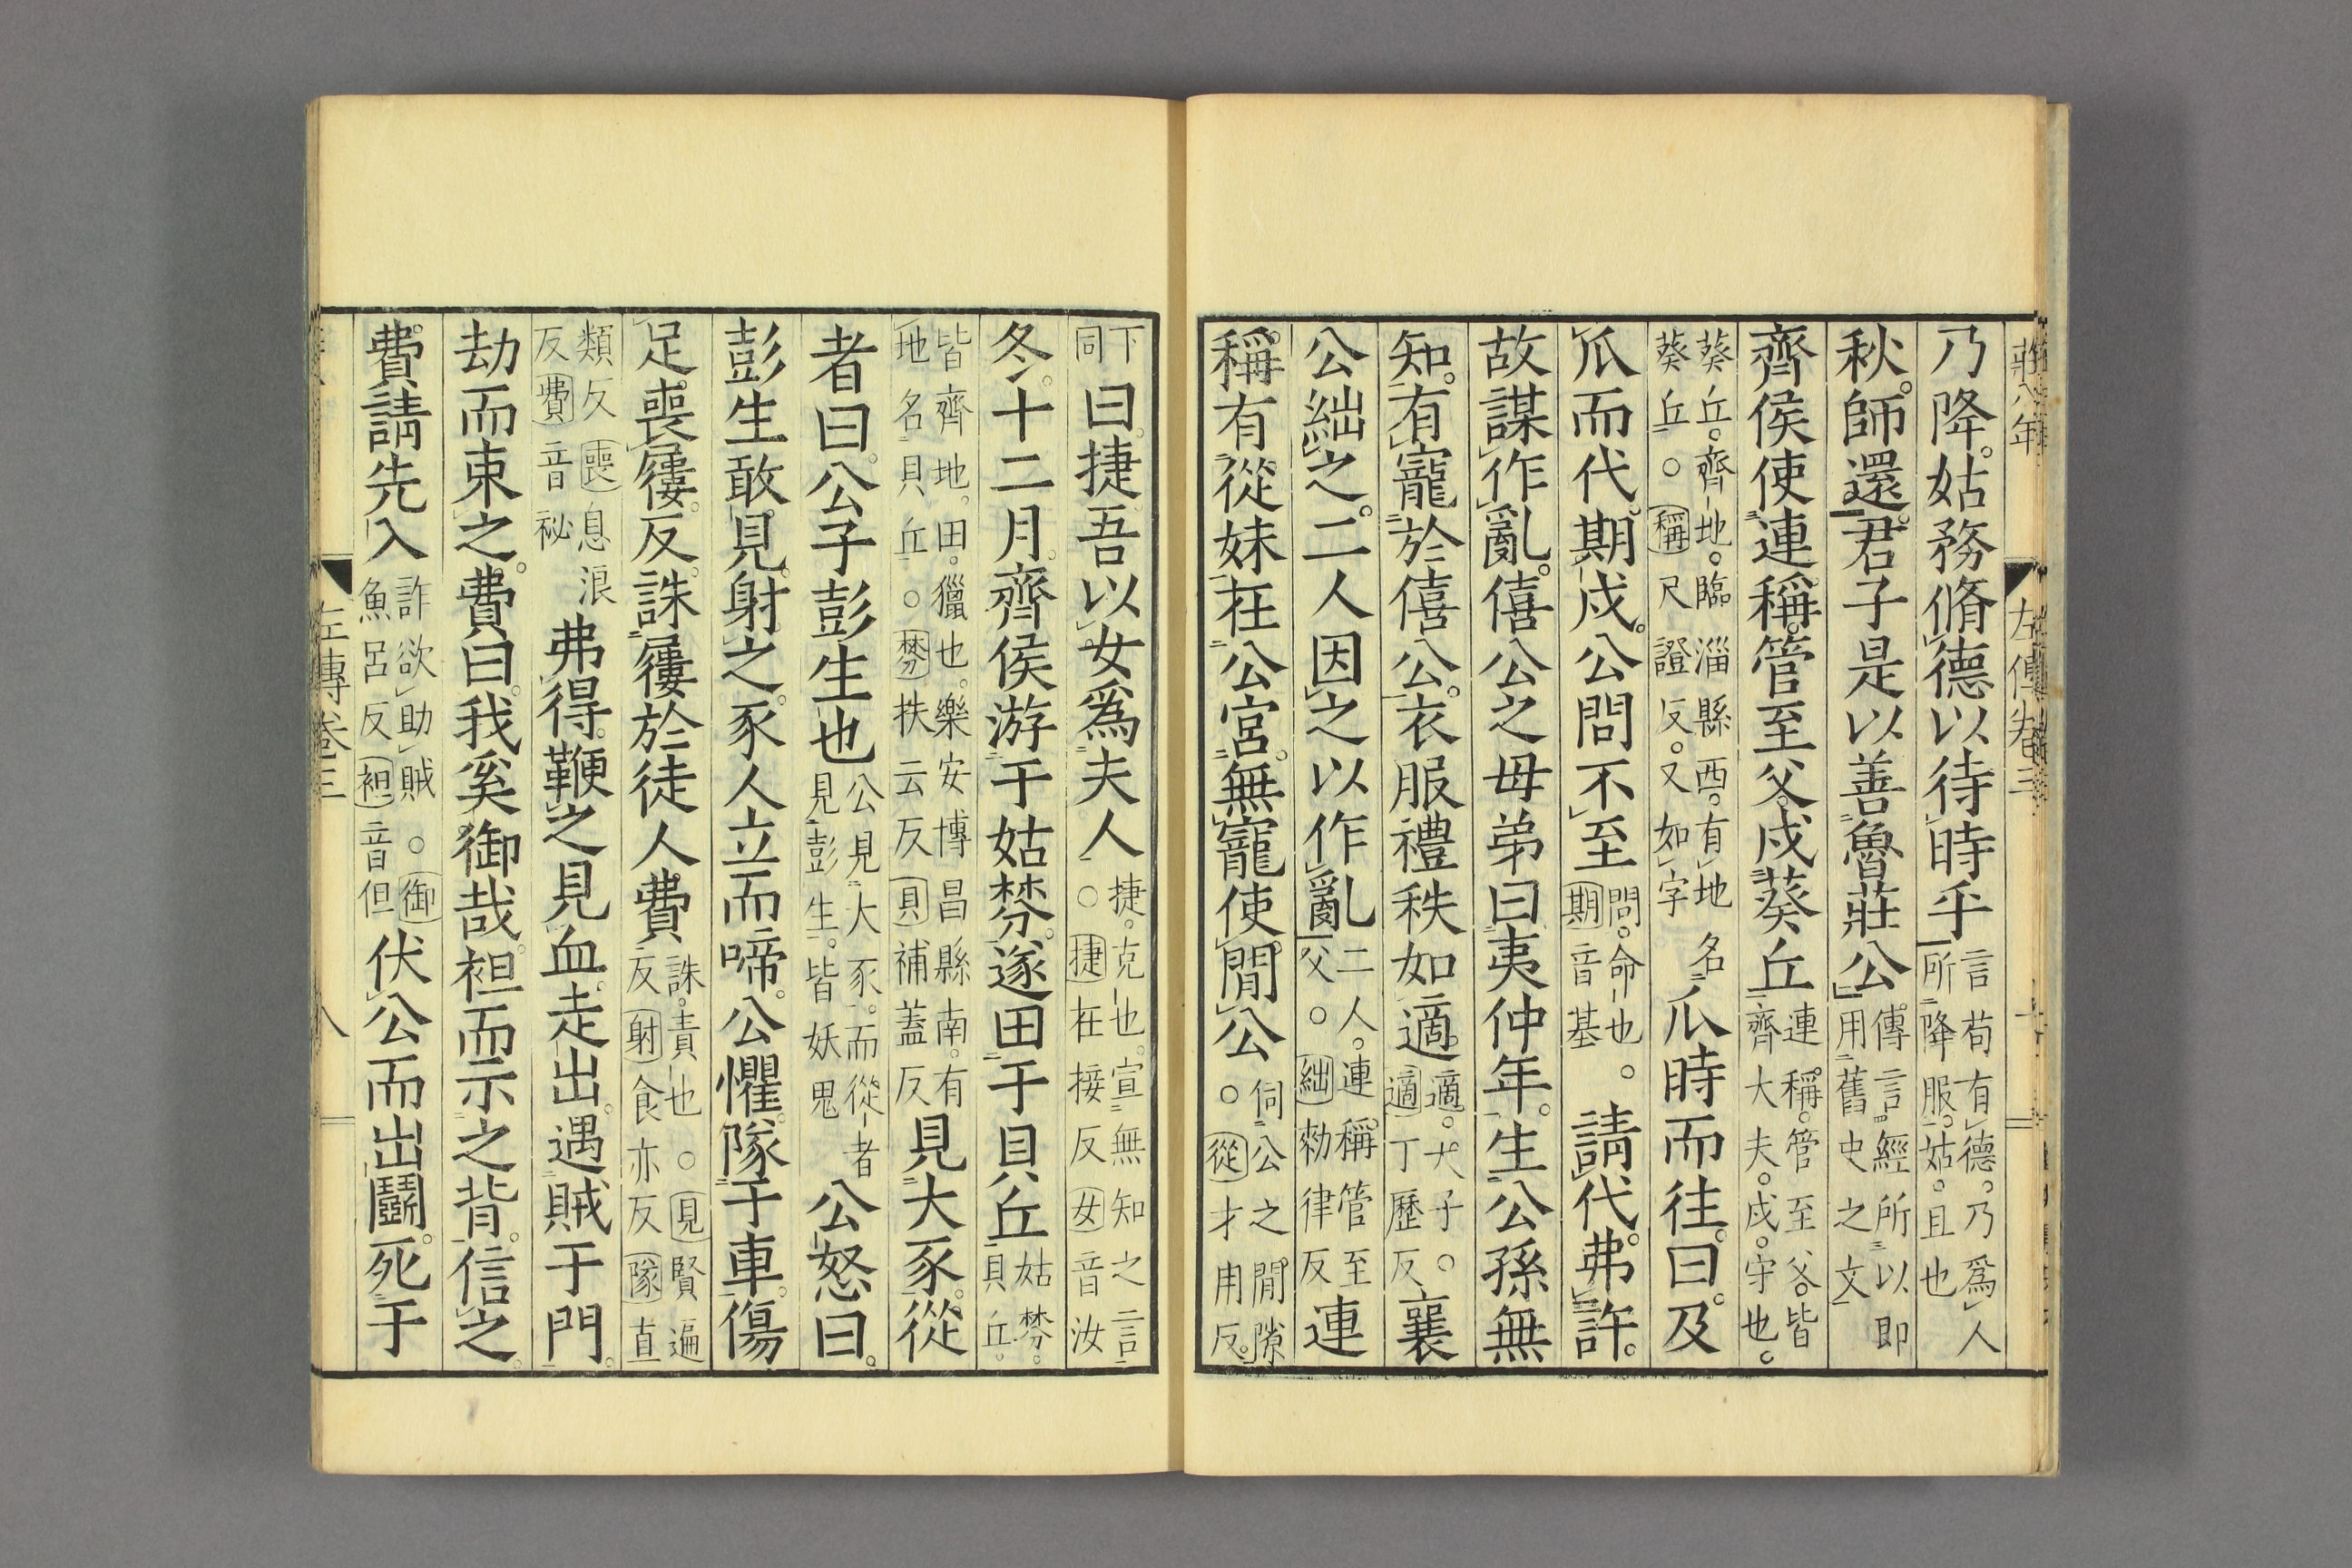 莊八年
左傳卷三
乃降。姑務脩德以待時乎言苟有德。乃爲人所降服。姑。且也
秋。師還。君子是以善魯莊公傳言經所以即用舊史之文
齊侯使連稱。管至父。戍葵丘連稱。管至父。皆齊大夫。戍。守也。
葵丘。齊地。臨淄縣西。有地名葵丘。○稱尺證反。又如字瓜時而往。曰。及
瓜而代。期戍。公問不至問。命也。○期音基請代。弗許。
故謀作亂。僖公之母弟曰夷仲年。生公孫無
知。有寵於僖公。衣服禮秩如適。適。大子。○適丁歷反襄
公絀之。二人因之以作亂二人。連稱管至父。○絀勑律反連
稱有從妹在公宮。無寵。使閒公。伺公之閒隙○從才用反。
下同曰。捷吾以女爲夫人捷。克也。宣無知之言○捷在接反女音汝
冬。十二月。齊侯游于姑棼。遂田于貝丘姑棼。貝丘。
皆齊地。田。獵也。樂安博昌縣南。有地名貝丘。○棼扶云反貝補蓋反見大豕。從
者曰。公子彭生也公見大豕。而從者見彭生。皆妖鬼公怒曰。
彭生敢見。射之。豕人立而啼。公懼。隊于車。傷
足。喪屨。反。誅屨於徒人費誅。責也。○見賢遍反射食亦反隊直
類反喪息浪反費音祕弗得。鞭之見血。走出。遇賊于門。
劫而束之。費曰。我奚御哉。袒而示之背。信之。
費請先入詐欲助賊。○御魚呂反袒音但伏公而出鬭。死于
左傳卷三
八